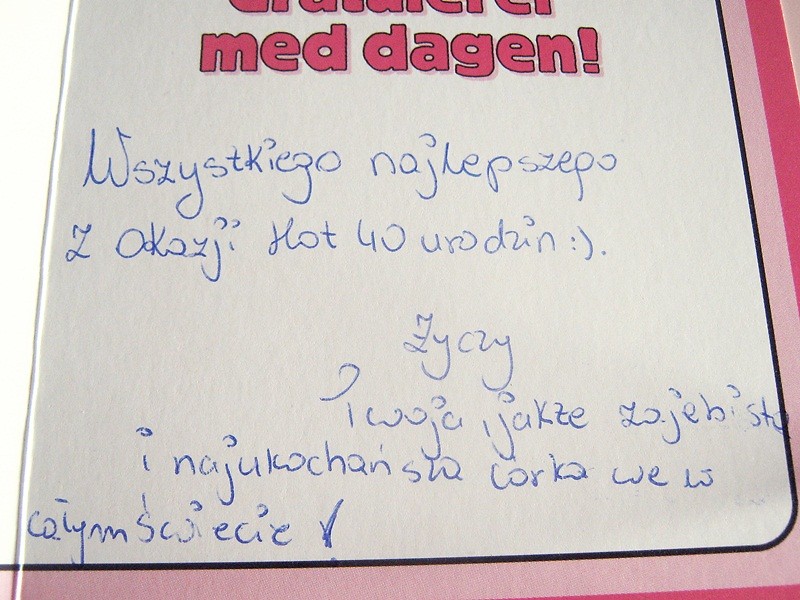 Gratulerer
med dagen!
Wszystkiego najlepszego
z okazji Hot 40 urodzin :).
Życzy
Twoja, jakże zajebista
i najukochańsza córka we w
całym świecie!